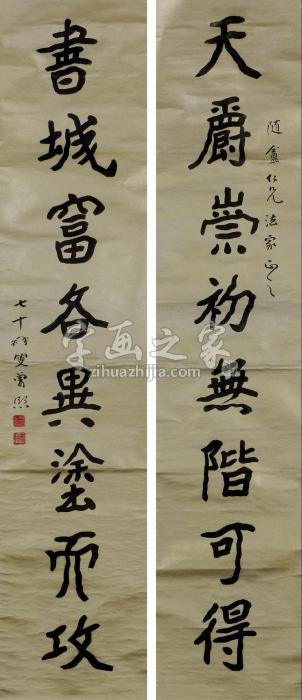 随盦仁兄法家正之
天爵崇初無階可得
書城富各異塗而攻
七十
叟曾熙
字画之家
zihuazhijia.com